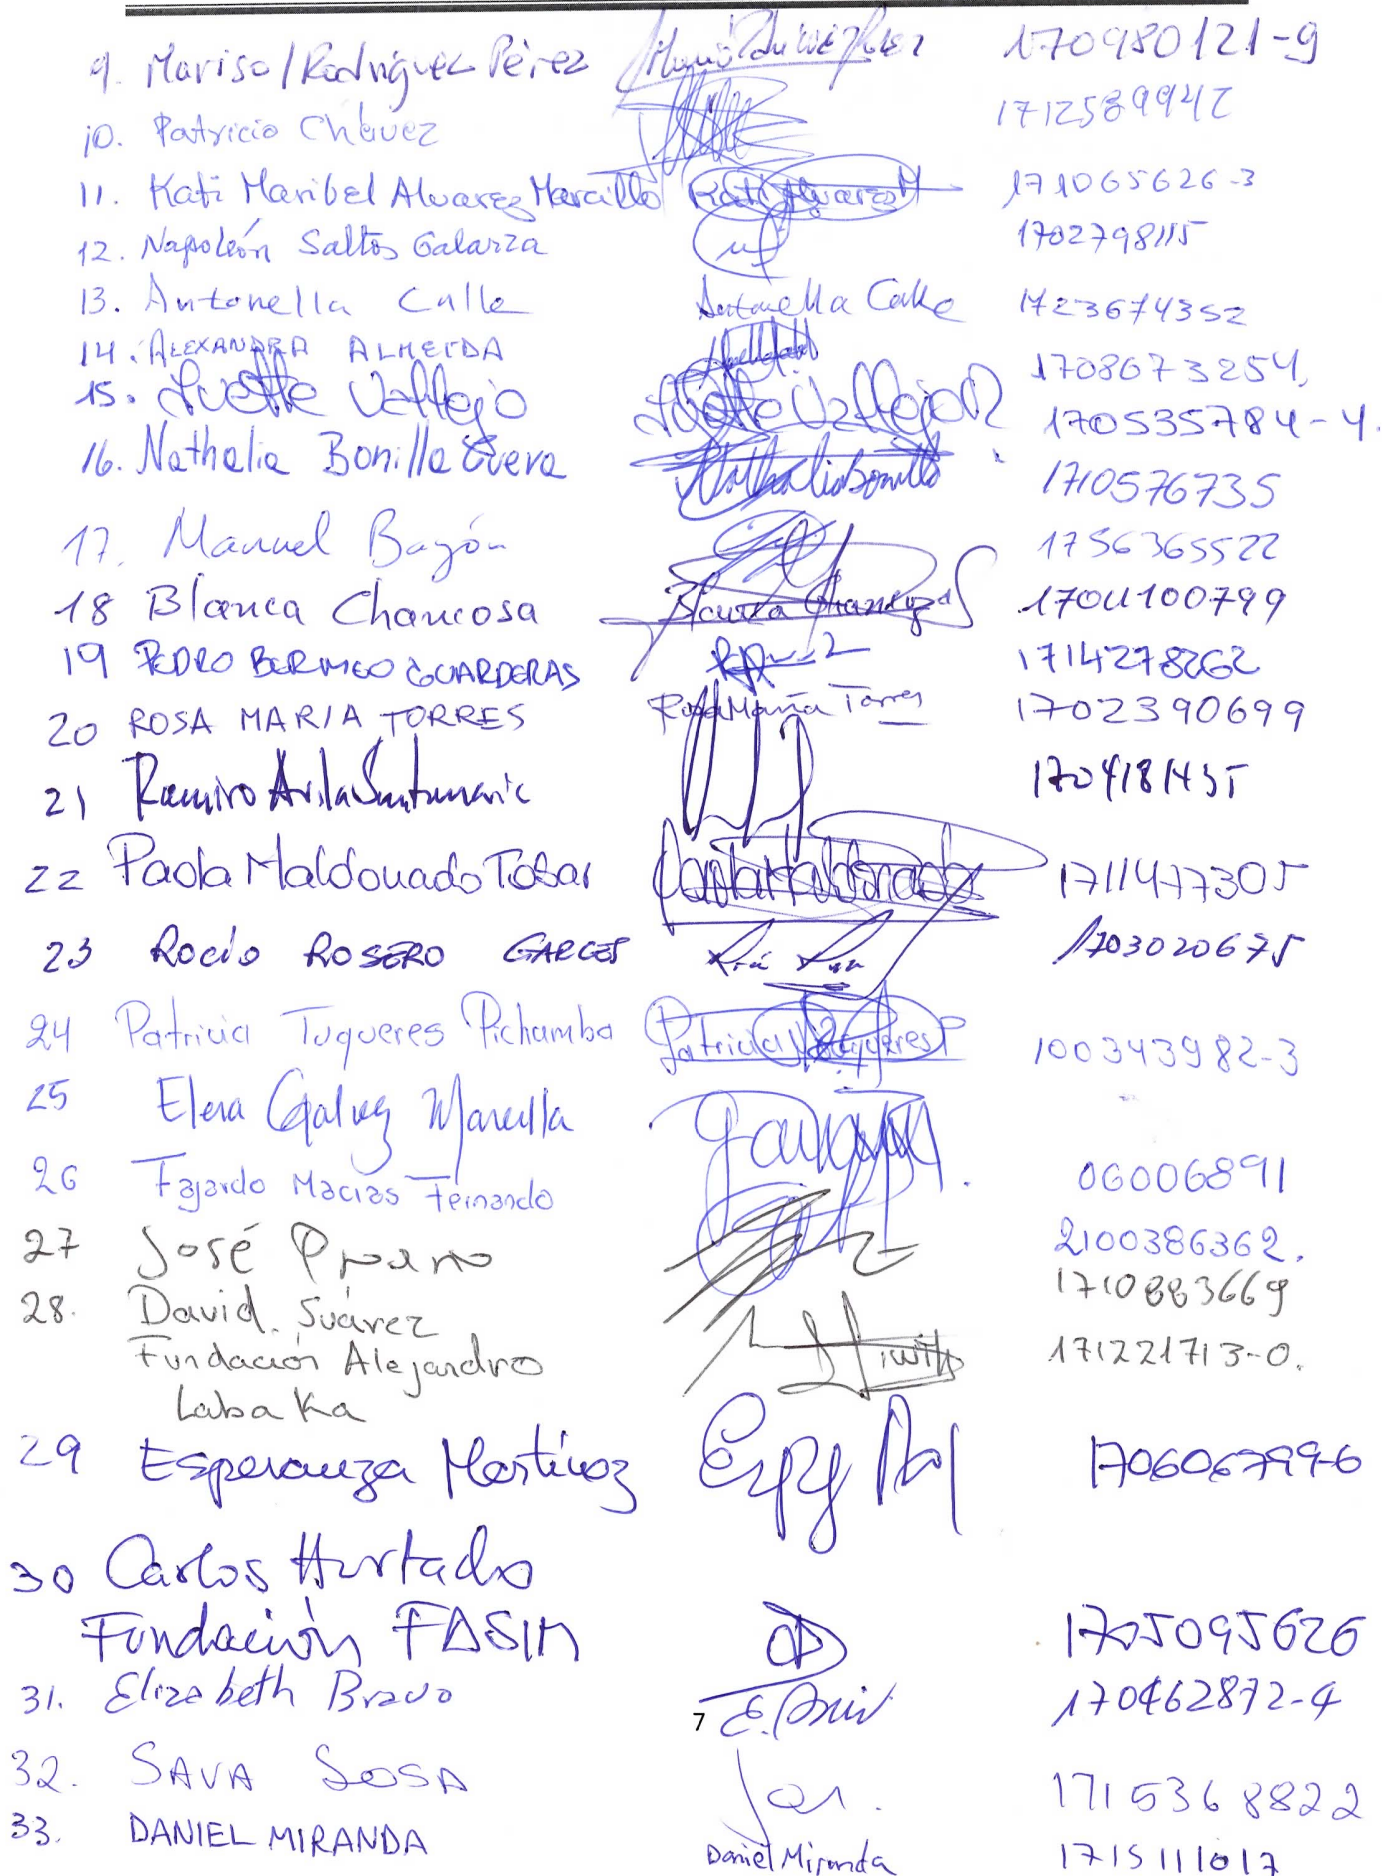 9. Marisol Rodríguez Pérez 170980121-9
10. Patricio Chávez 1712589942
11. Kati Maribel Alvarez Marcillo Kati Alvarez M 171065626-3
12. Napoleón Saltos Galarza 1702798115
13. Antonella Calle Antonella Calle 1723674352
14. ALEXANDRA ALMEIDA 1708673254.
15. Ivette Vallejo Ivette Vallejo R 170535784-4.
16. Nathalia Bonilla Cueva Nathalia Bonilla 1710576735
17. Manuel Bayón 1756365522
18 Blanca Chancosa Blanca Chancosa 1704100799
19 PEDRO BERMEO GUARDERAS 1714278262
20 ROSA MARIA TORRES Rosa María Torres 1702390699
21 Ramiro Avila Santamaria 1704181435
22 Paola Maldonado Tobar Paola Maldonado 1711477305
23 Rocío ROSERO GARCES 1703020675
24 Patricia Tuqueres Pichamba Patricia Tuqueres P 100343982-3
25 Elena Galvez Marcilla
26 Fajardo Macias Fernando 060006891
27 José 2100386362.
28. David Suárez 1710883669
Fundación Alejandro 171221713-0.
Labaka
29 Esperanza Martínez 170606799-6
30 Carlos Hurtado
Fundación FASIM 1705095626
31. Elizabeth Bravo 170462872-4
7
32. SAVA SOSA 1715368822
33. DANIEL MIRANDA Daniel Miranda 1715111017